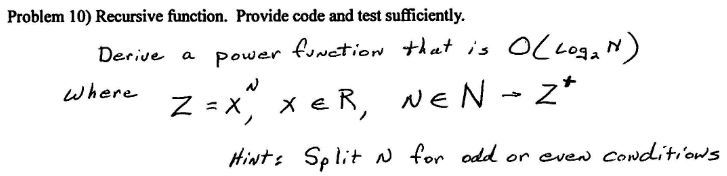 Problem 10) Recursive function. Provide code and test sufficiently.
Derive a power function that is O(Log₂ N)
where Z = xᴺ, x ∈ R, N ∈ N → Z⁺
Hint: Split N for odd or even conditions